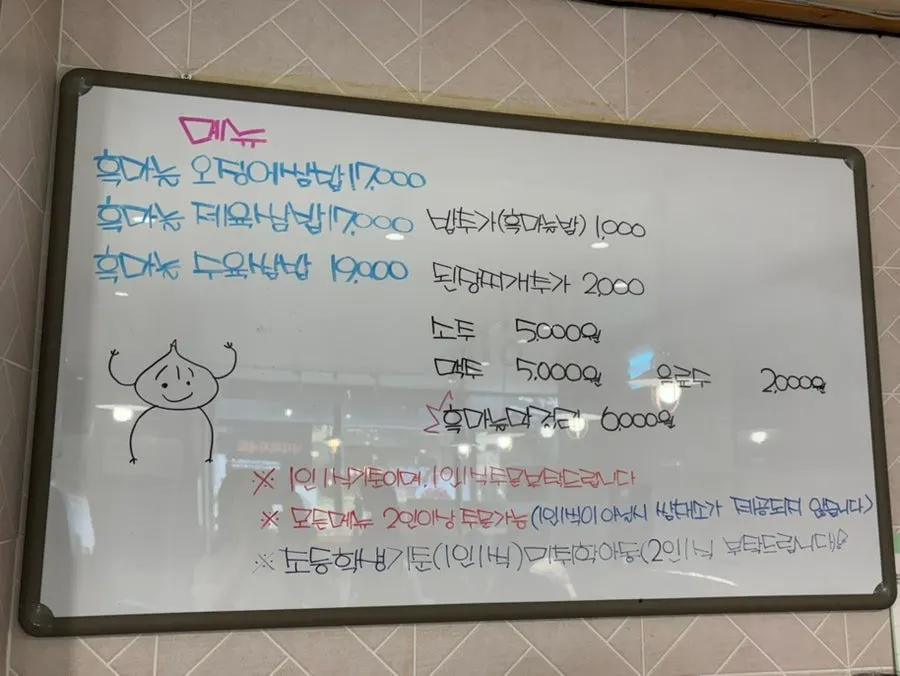 메뉴
흑마늘 오징어쌈밥 17,000
흑마늘 제육쌈밥 17,000
흑마늘 수육쌈밥 19,000
밥추가(흑마늘밥) 1,000
된장찌개추가 2,000
소주 5,000원
맥주 5,000원
음료수 2,000원
☆흑마늘막걸리 6,000원
※ 1인1식기준이며, 1인1식주문부탁드립니다
※ 모든메뉴 2인이상 주문가능(1인1식이 아닐시 쌈채소가 제공되지 않습니다)
※ 초등학생기준(1인1식) 미취학아동(2인1식 부탁드립니다)